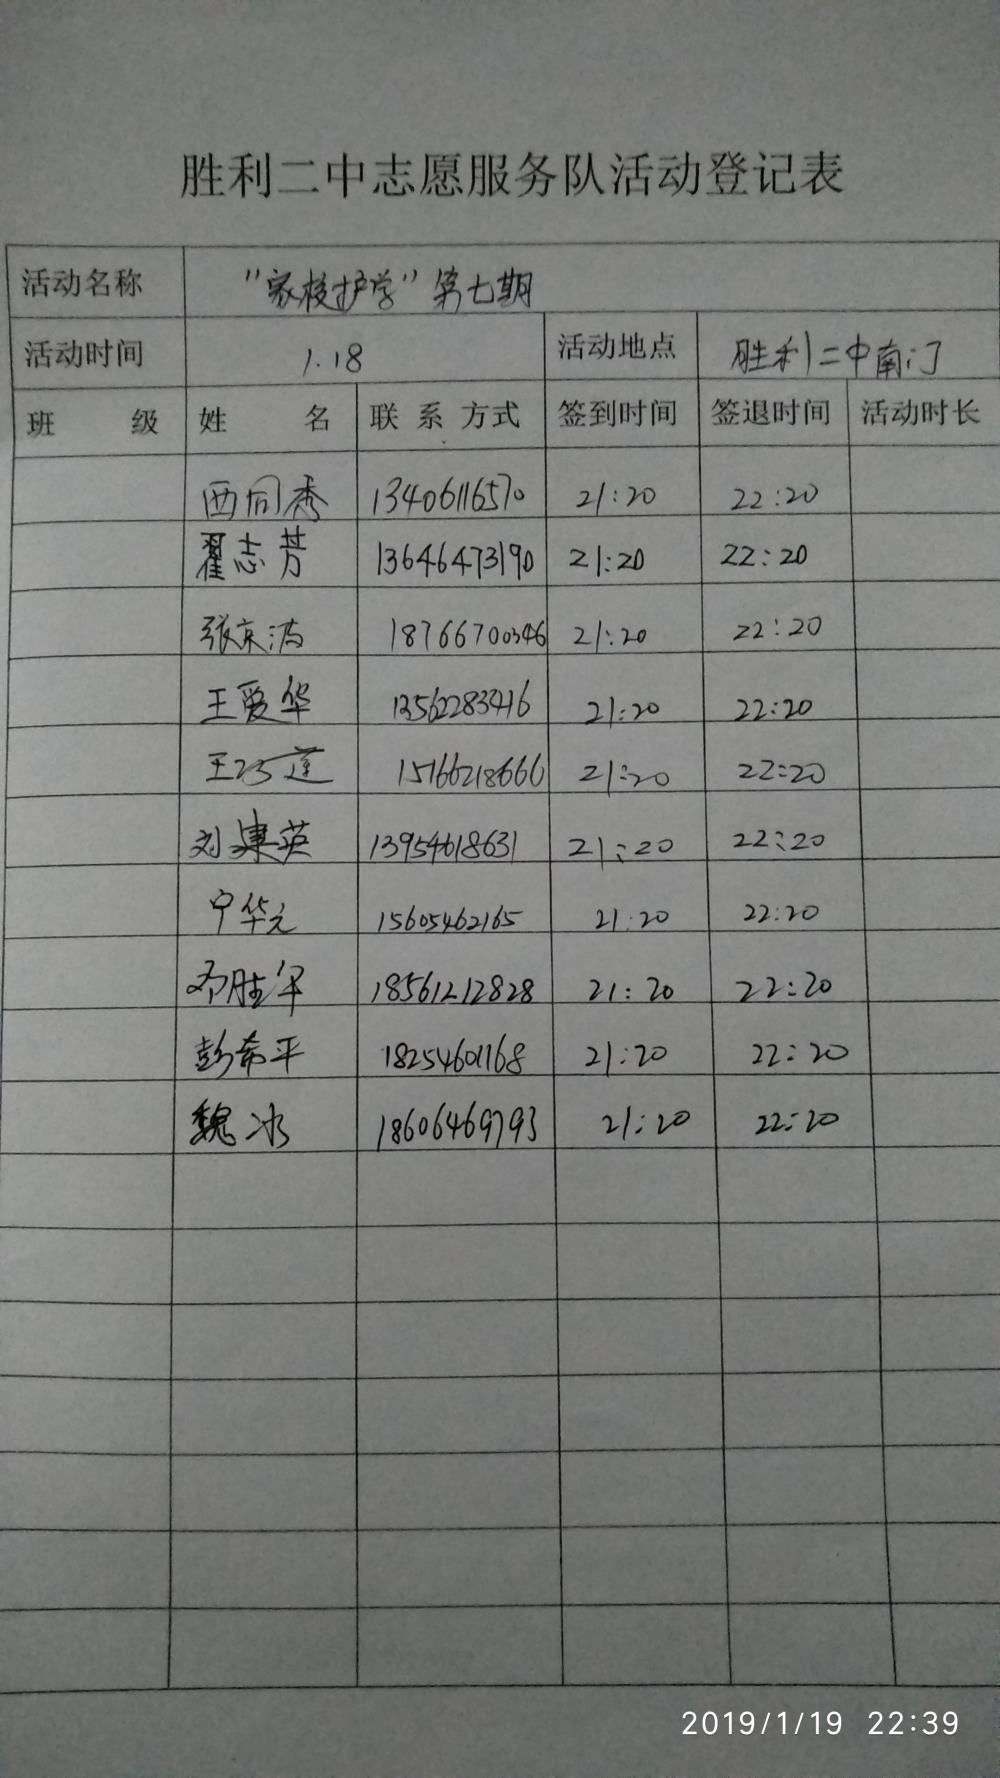 胜利二中志愿服务队活动登记表
活动名称 "家校护学"第七期
活动时间 1.18 活动地点 胜利二中南门
班 级 姓 名 联系方式 签到时间 签退时间 活动时长
西同秀 13406116570 21:20 22:20
翟志芳 13646473190 21:20 22:20
张京涛 18766700346 21:20 22:20
王爱华 13562283416 21:20 22:20
王巧莲 15166218666 21:20 22:20
刘建英 13954618631 21:20 22:20
宁华元 15605462165 21:20 22:20
邓胜军 18561212828 21:20 22:20
彭希平 18254601168 21:20 22:20
魏冰 18606469793 21:20 22:20
2019/1/19 22:39